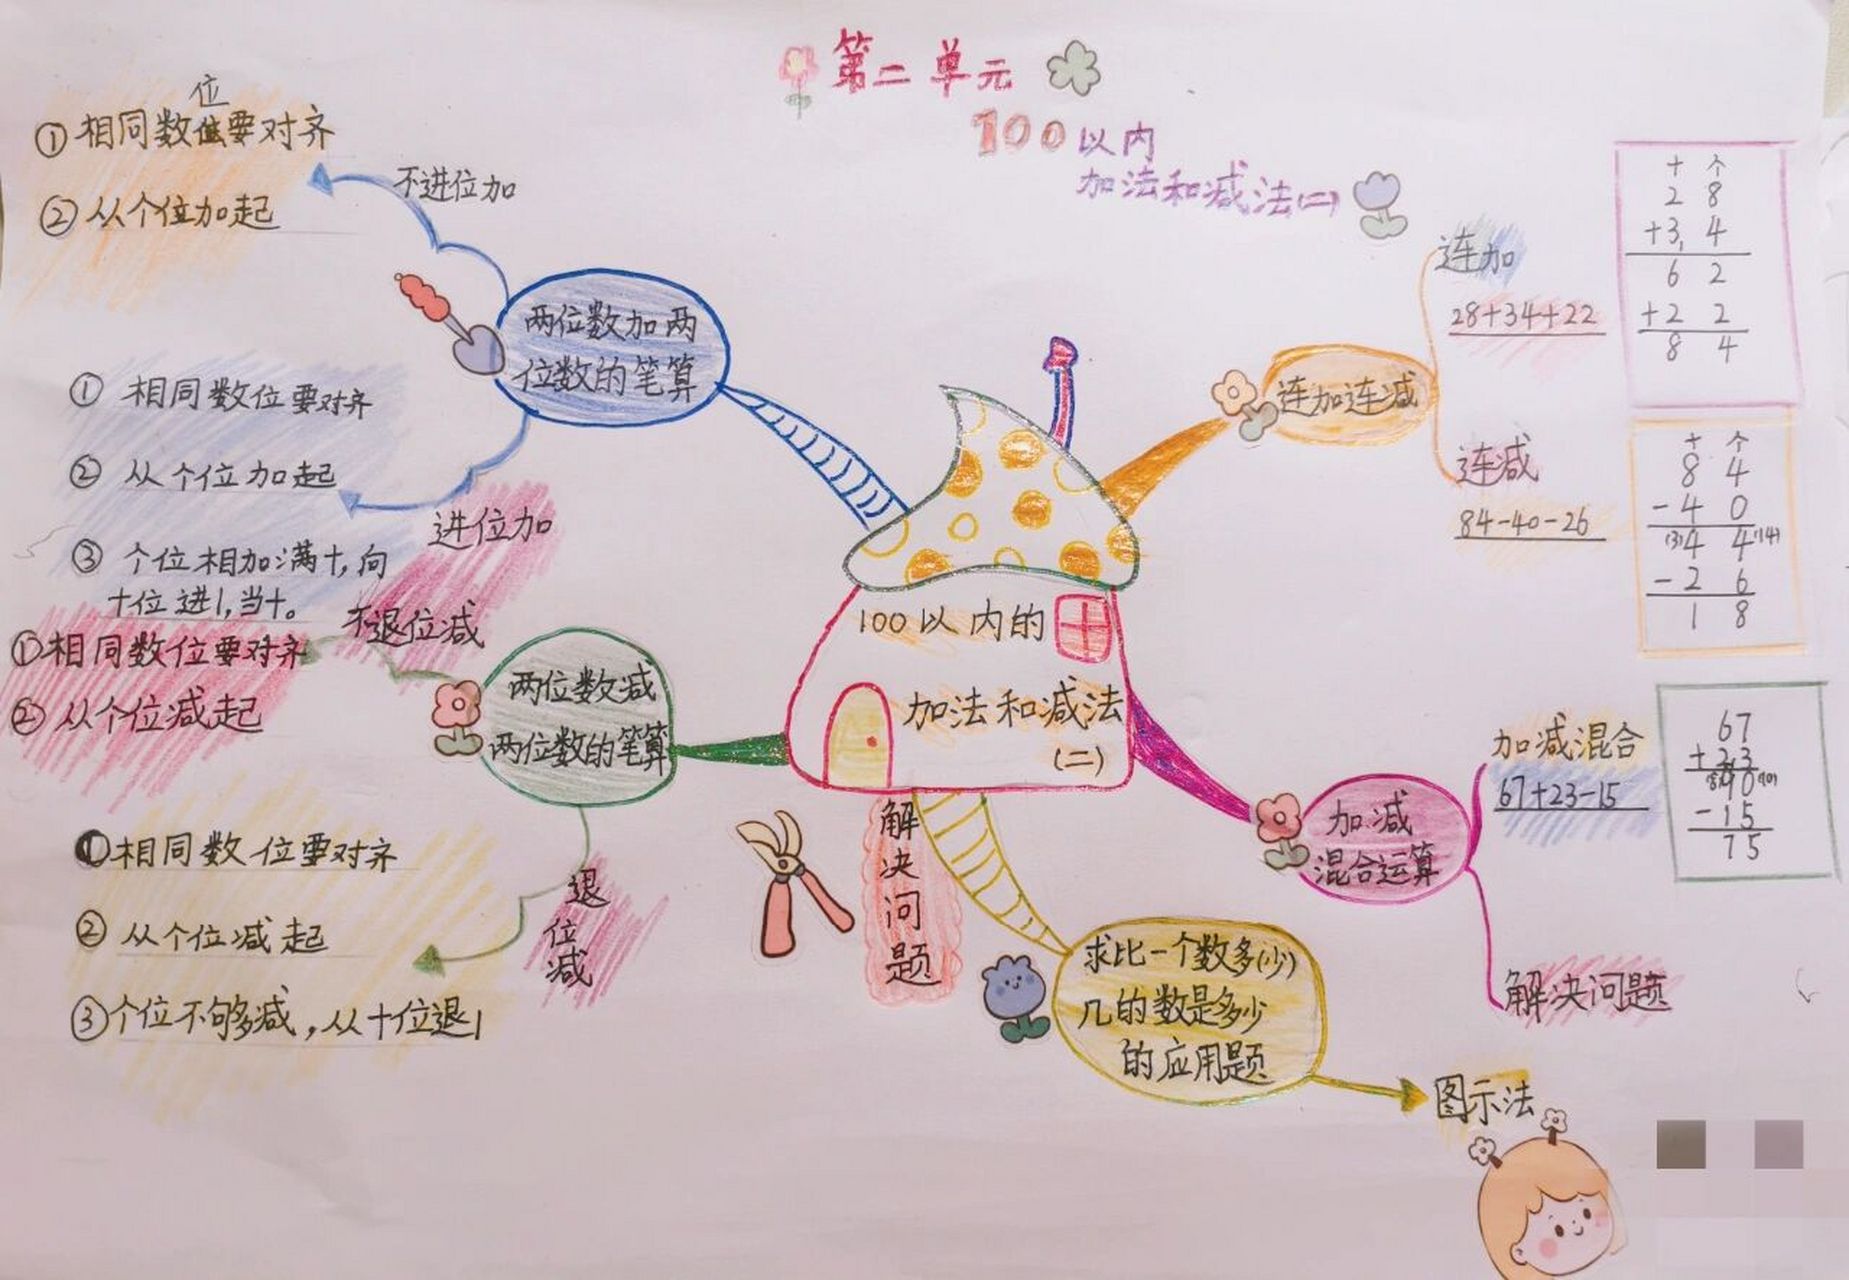 第二单元
100以内
加法和减法(二)
位
①相同数位要对齐
②从个位加起
不进位加
两位数加两
位数的笔算
① 相同数位要对齐
② 从个位加起
③ 个位相加满十,向
十位进1,当十。
进位加
不退位减
①相同数位要对齐
②从个位减起
两位数减
两位数的笔算
①相同数位要对齐
②从个位减起
③个位不够减,从十位退1
退
位
减
100以内的
加法和减法
(二)
解
决
问
题
求比一个数多(少)
几的数是多少
的应用题
图示法
连加连减
连加
28+34+22
十 个
2 8
+3 4
6 2
+2 2
8 4
连减
84-40-26
十 个
8 4
-4 0
(3)4 4(14)
-2 6
1 8
加减
混合运算
加减混合
67+23-15
67
+23
(8)90(10)
-15
75
解决问题